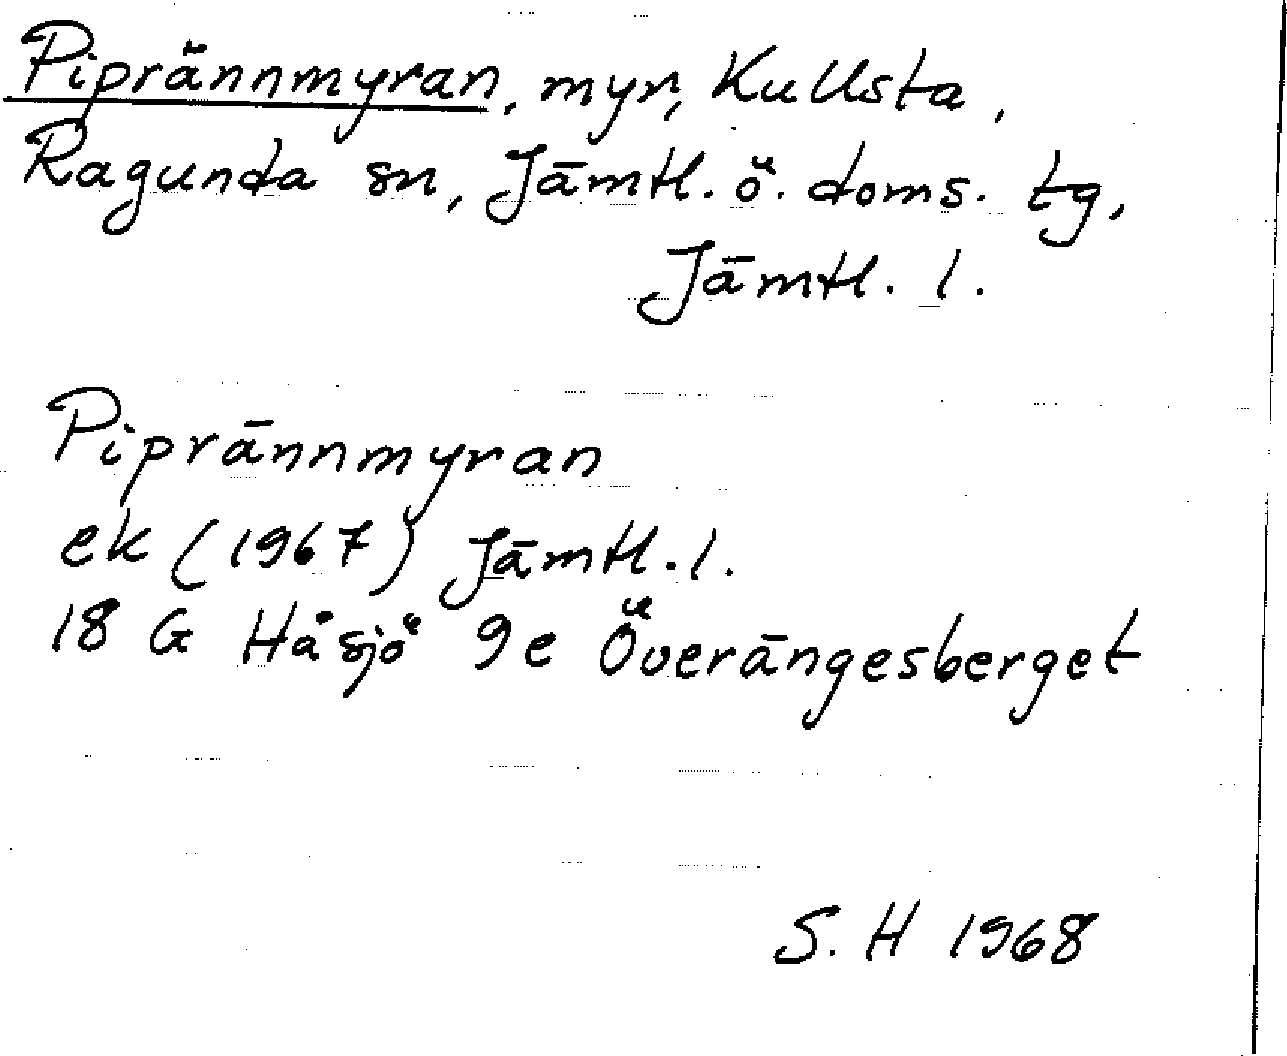 Piprännmyran, myr, Kullsta,
Ragunda sn, Jämtl. ö. doms. tg,
Jämtl. l.
Piprännmyran
ek (1967) Jämtl. l.
18 G Håsjö 9e Överängesberget
S. H 1968